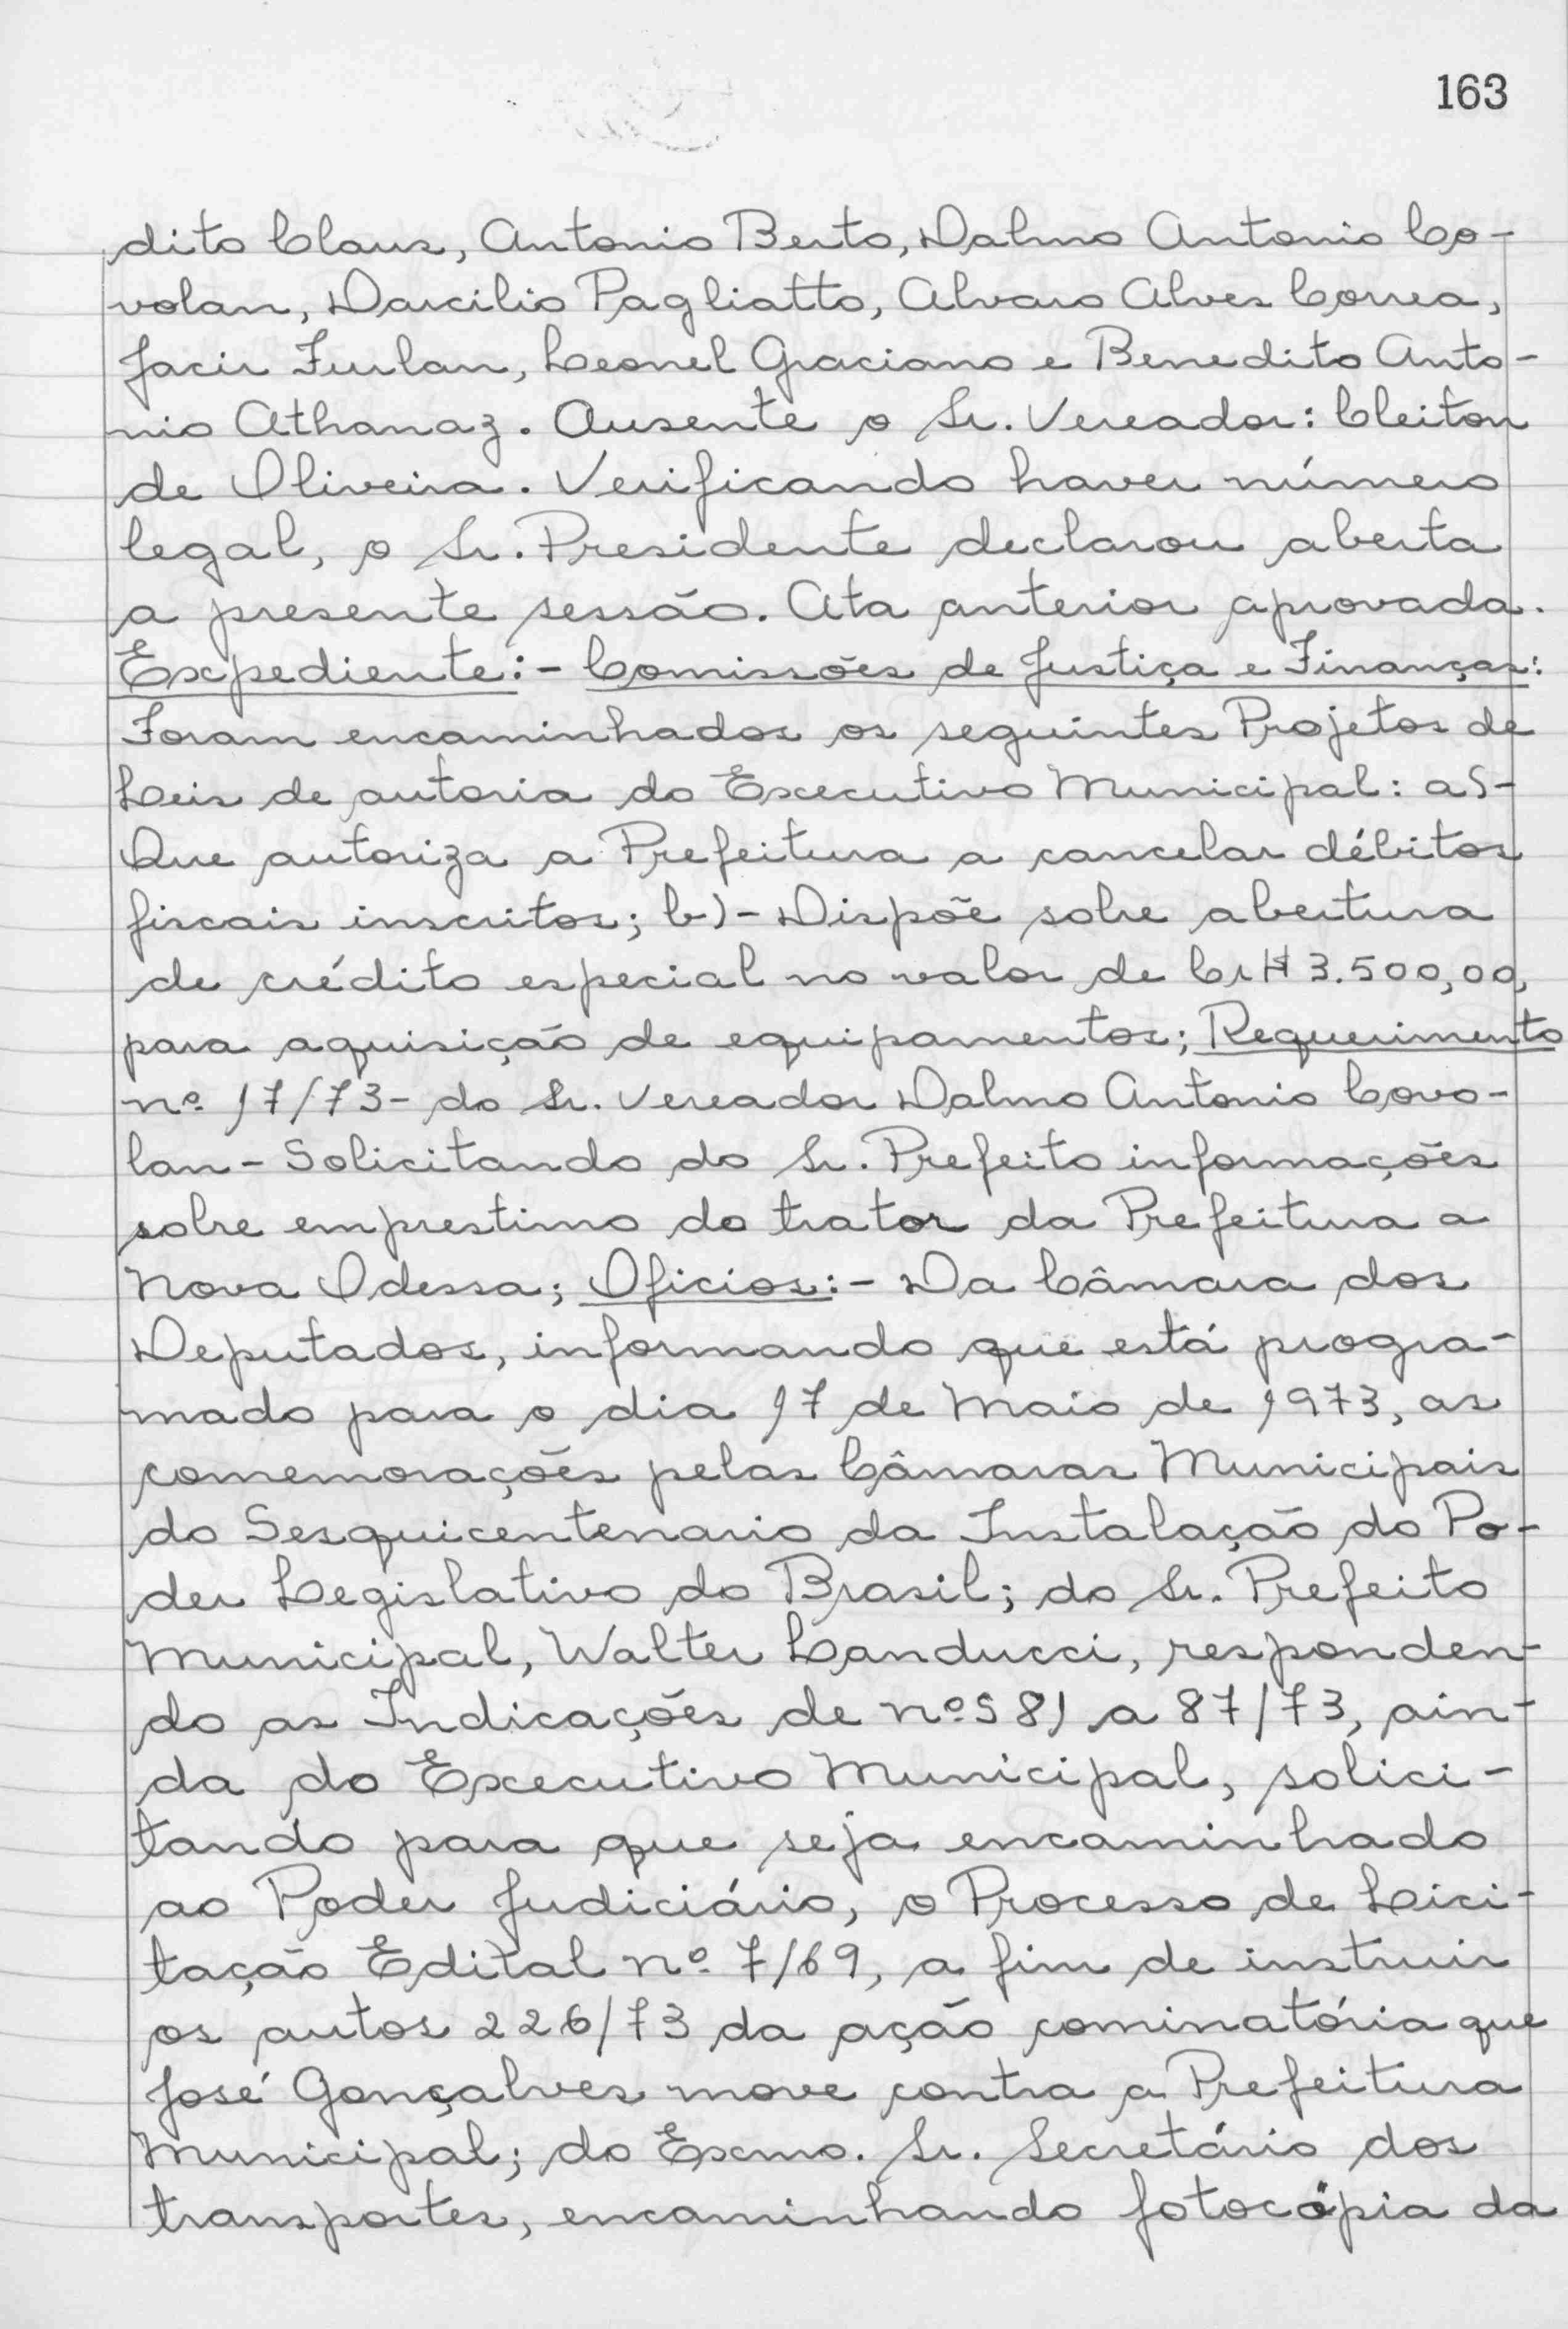 163
dito Claus, Antonio Berto, Dalmo Antonio Co-
volan, Darcilio Pagliatto, Alvaro Alves Correa,
Jacir Furlan, Leonel Graciano e Benedito Anto-
nio Athanaz. Ausente o Sr. Vereador: Cleiton
de Oliveira. Verificando haver número
legal, o Sr. Presidente declarou aberta
a presente sessão. Ata anterior aprovada.
Expediente:- Comissões de Justiça e Finanças:
Foram encaminhados os seguintes Projetos de
Leis de autoria do Executivo Municipal: a)-
Que autoriza a Prefeitura a cancelar débitos
fiscais inscritos; b)- Dispõe sobre abertura
de crédito especial no valor de Cr$ 3.500,00,
para aquisição de equipamentos; Requerimento
nº 17/73- do Sr. Vereador Dalmo Antonio Covo-
lan- Solicitando do Sr. Prefeito informações
sobre emprestimo do trator da Prefeitura a
Nova Odessa; Oficios:- Da Câmara dos
Deputados, informando que está progra-
mado para o dia 17 de Maio de 1973, as
comemorações pelas Câmaras Municipais
do Sesquicentenario da Instalação do Po-
der Legislativo do Brasil; do Sr. Prefeito
Municipal, Walter Landucci, responden-
do as Indicações de nºs 81 a 87/73, ain-
da do Executivo Municipal, solici-
tando para que seja encaminhado
ao Poder Judiciário, o Processo de Lici-
tação Edital nº 7/69, a fim de instruir
os autos 226/73 da ação cominatória que
José Gonçalves move contra a Prefeitura
Municipal; do Exmo. Sr. Secretário dos
transportes, encaminhando fotocópia da